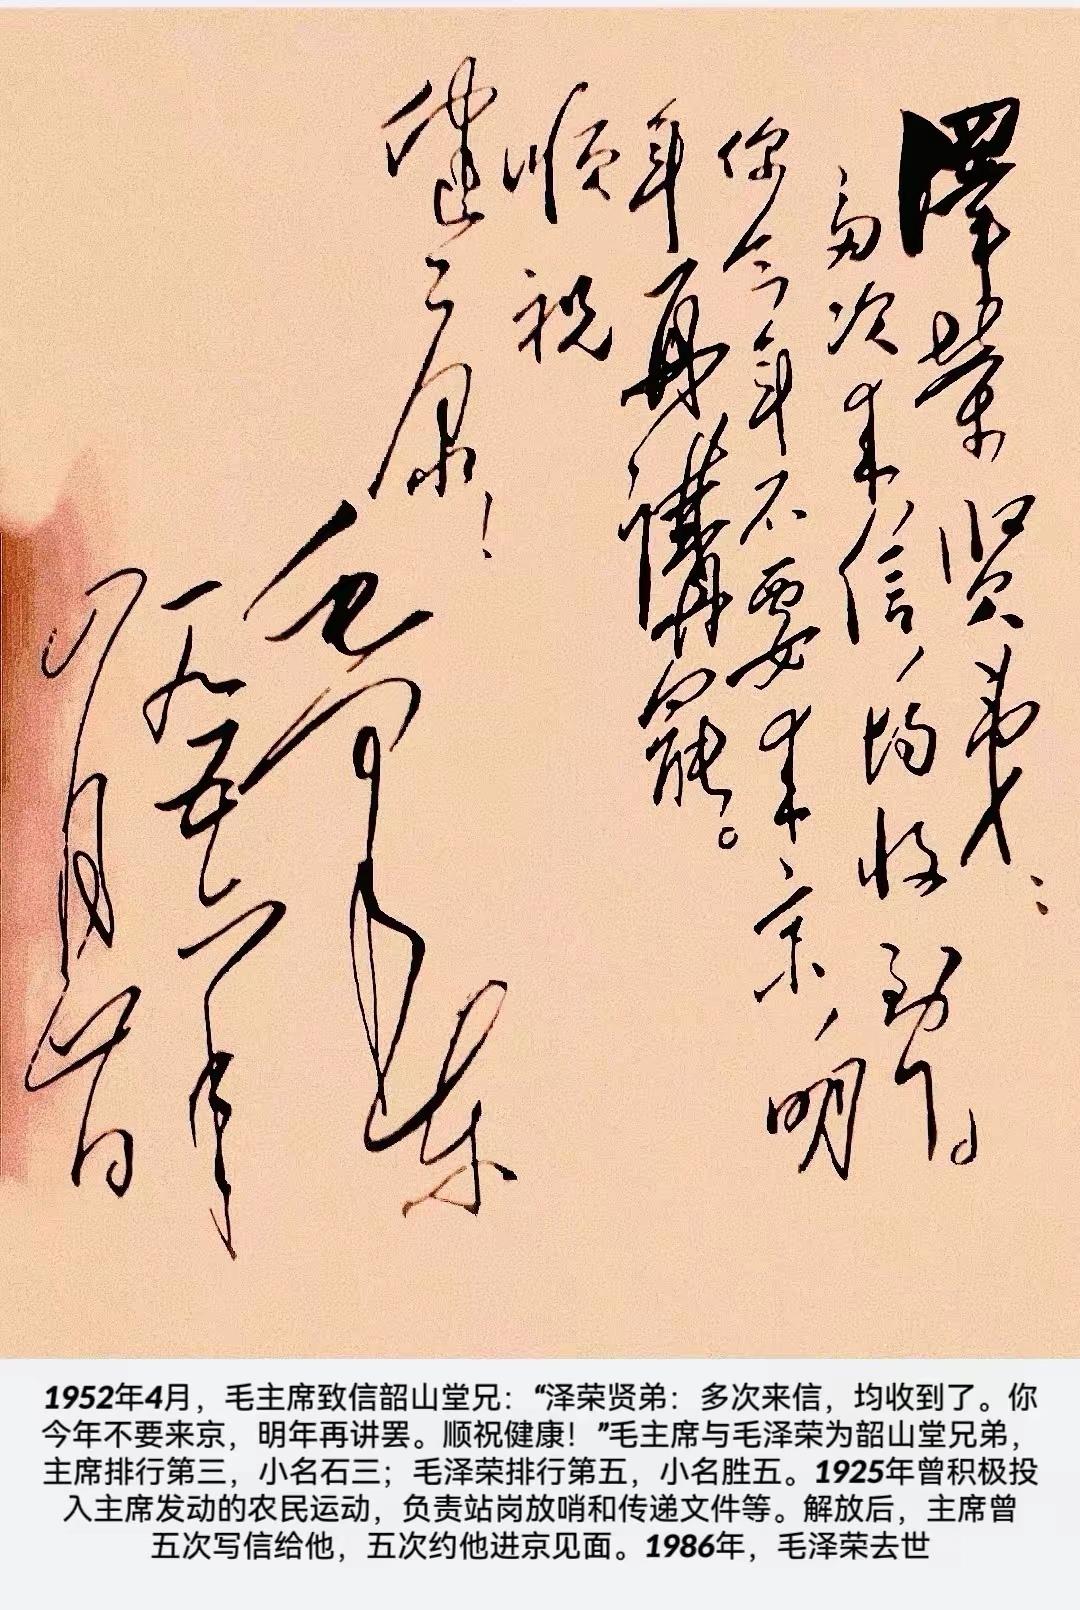 澤荣贤弟：
多次来信，均收到了。
你今年不要来京，明
年再講罷。
顺祝
健康！
毛泽东
一九五二年
四月廿日
1952年4月，毛主席致信韶山堂兄：“泽荣贤弟：多次来信，均收到了。你
今年不要来京，明年再讲罢。顺祝健康！”毛主席与毛泽荣为韶山堂兄弟，
主席排行第三，小名石三；毛泽荣排行第五，小名胜五。1925年曾积极投
入主席发动的农民运动，负责站岗放哨和传递文件等。解放后，主席曾
五次写信给他，五次约他进京见面。1986年，毛泽荣去世